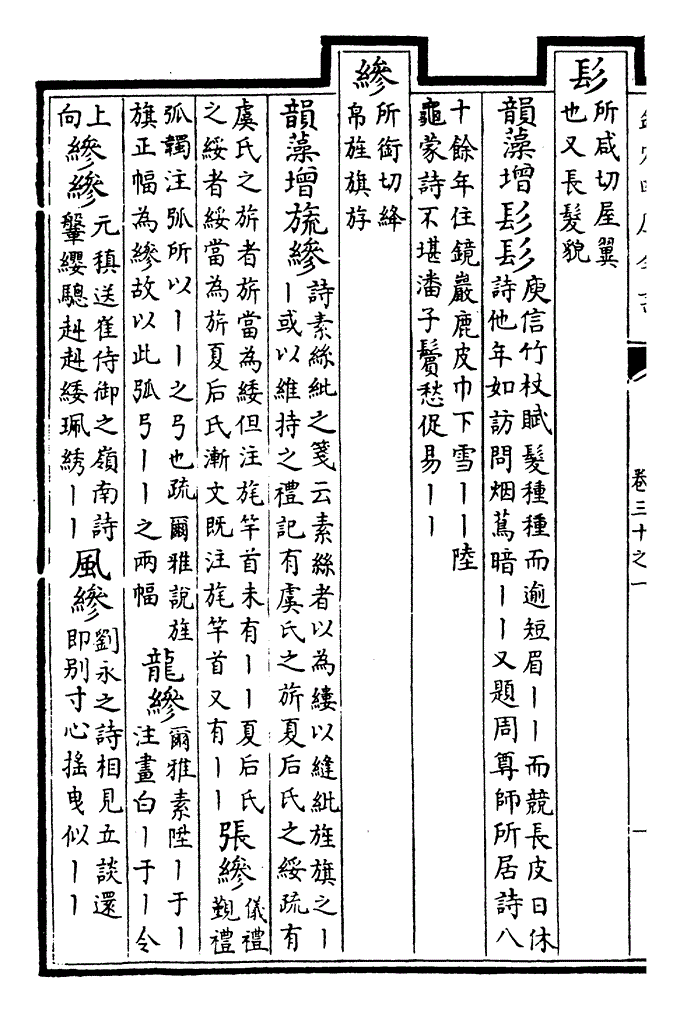 卷三十之一
一
髟
所咸切屋翼
也又長髮貌
韻藻增髟髟
庾信竹杖賦髮種種而逾短眉丨丨而競長皮日休
詩他年如訪問烟蔦暗丨丨又題周尊師所居詩八
十餘年住鏡巖鹿皮巾下雪丨丨陸
龜蒙詩不堪潘子鬢愁促易丨丨
縿
所銜切絳
帛旌旗斿
韻藻增旒縿
詩素絲紕之箋云素絲者以為縷以縫紕旌旗之丨
丨或以維持之禮記有虞氏之旂夏后氏之綏疏有
虞氏之旂者旂當為緌但注旄竿首未有丨丨夏后氏
之綏者綏當為旂夏后氏漸文既注旄竿首又有丨丨
張縿
儀禮
覲禮
弧韣注弧所以丨丨之弓也疏爾雅說旌
旗正幅為縿故以此弧弓丨丨之兩幅
龍縿
爾雅素陞丨于丨
注畫白丨于丨令
上
向
縿縿
元稹送崔侍御之嶺南詩
鞶纓驄赳赳緌珮綉丨丨
風縿
劉永之詩相見立談還
即别寸心搖曳似丨丨